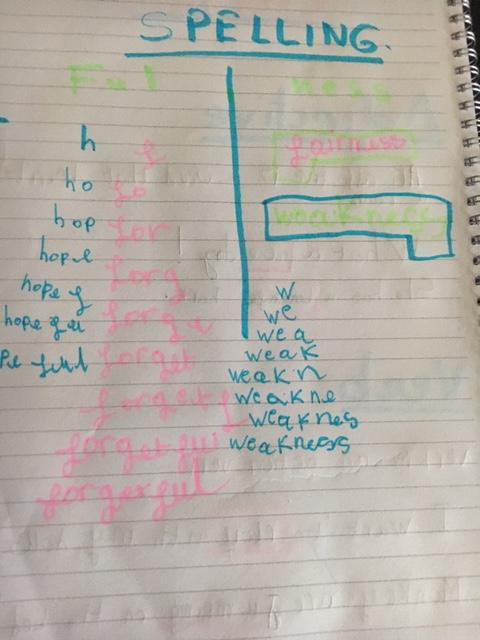 SPELLING.
Ful
h
ho
hop
hope
hopef
hopefu
pe ful
f
fo
for
forg
forge
forget
forgetf
forgetfu
forgetful
ness
fairness
weakness
w
we
wea
weak
weakn
weakne
weaknes
weakness